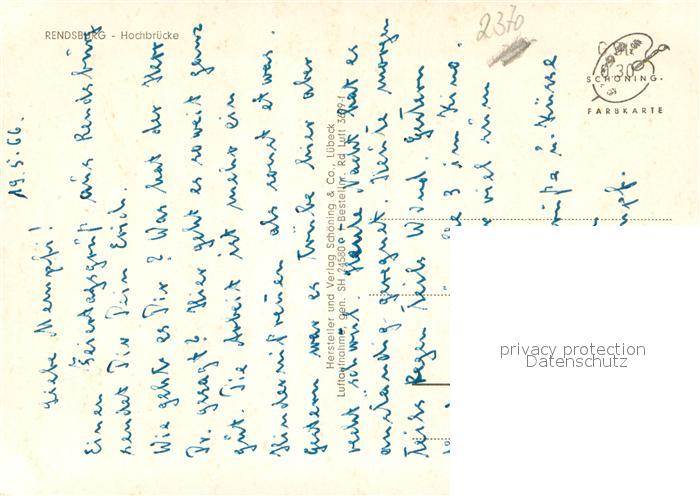 RENDSBURG - Hochbrücke
2370
SCHÖNING-
FARBKARTE
19.5.66.
Liebe
Einen Feiertagsgruß aus Rendsburg
sendet Dir Dein Erich.
Wie geht es Dir? Was hat der Herr
Dr. gesagt? Hier geht es soweit ganz
gut. Die Arbeit ist mehr ein
als sonst etwas.
Gestern war es Trübe hier aber
recht schwül. Heute Nacht hat es
anständig geregnet. Heute morgen
Teils Regen Teils Wind. Gestern
3 im Kino.
viel
Küsse
Hersteller und Verlag Schöning & Co., Lübeck
Luftaufnahme, gen. SH 24580 Bestellnr. Rd Luft 3609-1
privacy protection
Datenschutz